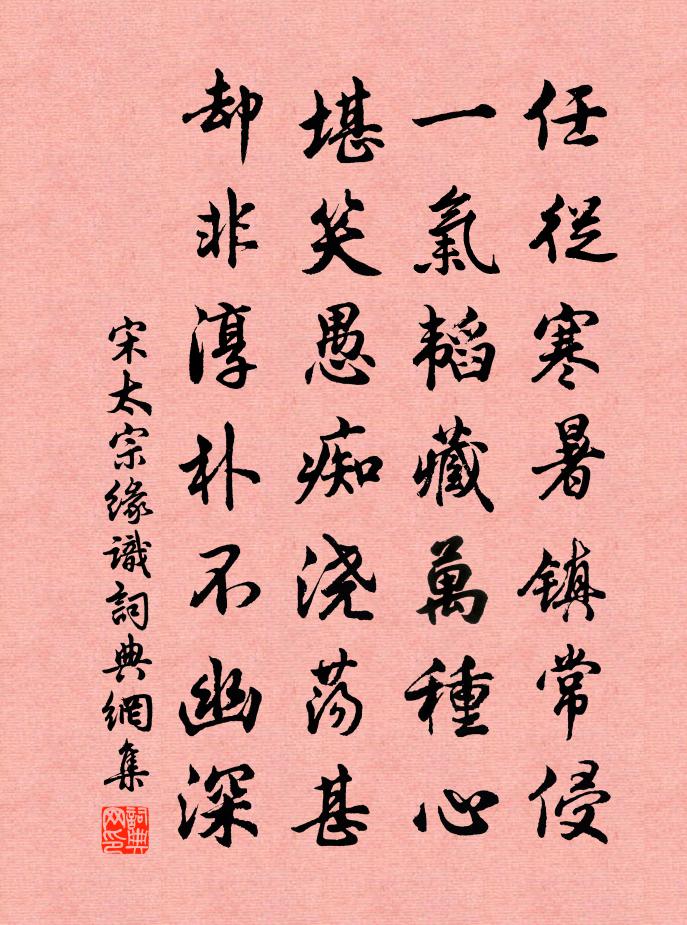 任從寒暑镇常侵
一氣韬藏萬種心
堪笑愚痴浇荡甚
却非淳朴不幽深
宋太宗緣識詞典網集
詞典网印